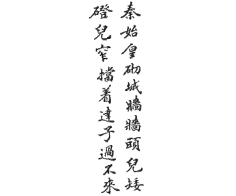 秦始皇砌城牆牆頭兒矮
磴兒窄擋着達子過不來